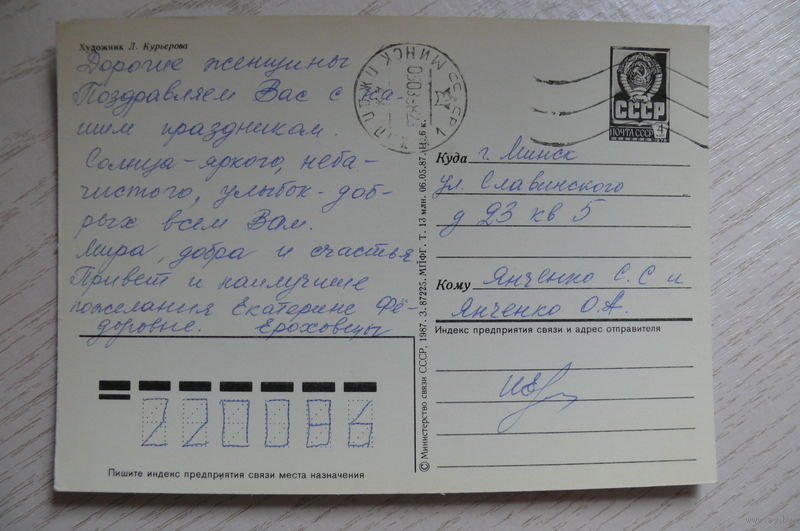 Художник Л. Курьерова
Дорогие женщины
Поздравляем Вас с ва-
шим праздником.
Солнца - яркого, неба -
чистого, улыбок - доб-
рых всем Вам.
Мира, добра и счастья
Привет и наилучшие
пожелания Екатерине Фё-
доровне. Ероховцы
МИНСК ПЖДП
СССР
ПОЧТА СССР
4
Куда г. Минск
ул. Славинского
д 23 кв 5
Кому Янченко С. С и
Янченко О.А.
Индекс предприятия связи и адрес отправителя
220086
Пишите индекс предприятия связи места назначения
© Министерство связи СССР, 1987. З. 87225. МПФГ. Т. 13 млн. 06.05.87. Ц. 6 к.